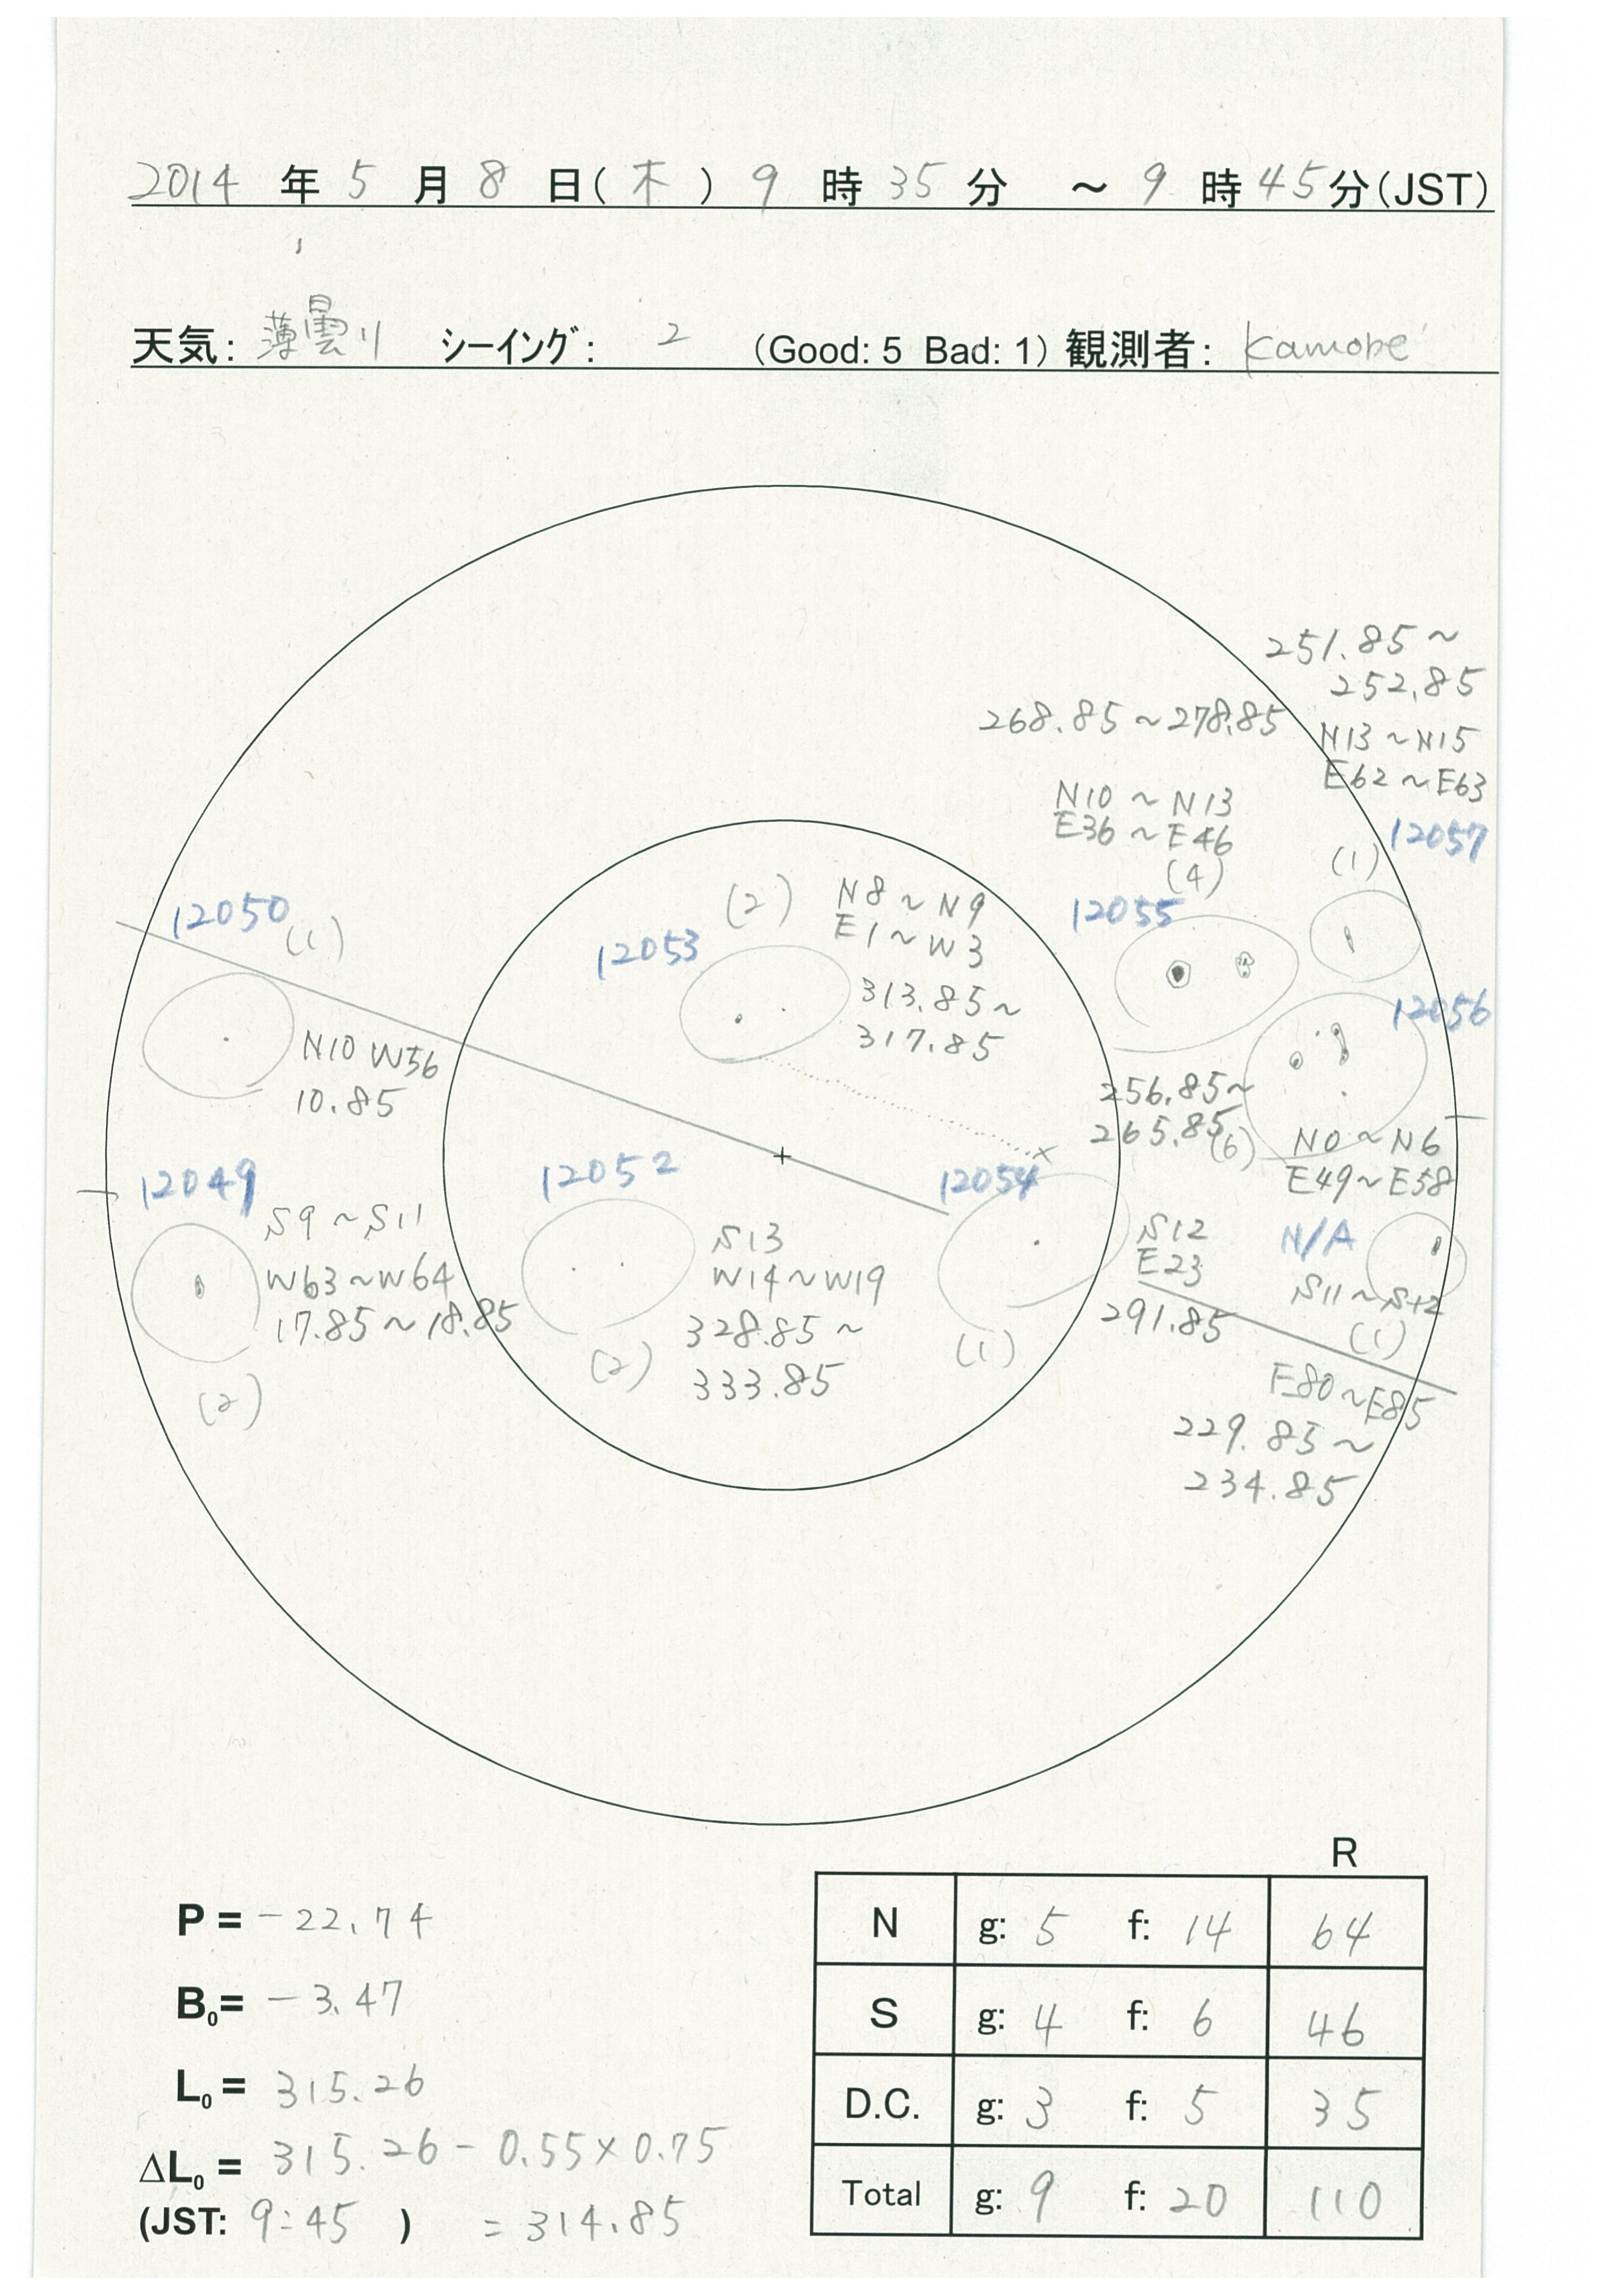 2014 年 5 月 8 日(木) 9 時 35 分 ～ 9 時 45 分(JST)
天気: 薄曇り シーイング: 2 (Good: 5 Bad: 1) 観測者: Kamobe
251.85～
252.85
268.85～278.85
N13～N15
E62～E63
N10～N13
E36～E46
12057
(1)
(4)
12055
12050
(1)
(2)
N8～N9
E1～W3
12053
313.85～
317.85
12056
N10 W56
10.85
256.85～
265.85
(6)
N0～N6
E49～E58
12049
12052
12054
S9～S11
W63～W64
17.85～18.85
(2)
S13
W14～W19
328.85～
333.85
(2)
S12
E23
291.85
(1)
N/A
S11～S12
(1)
E80～E85
229.85～
234.85
R
P = -22.74
B₀= -3.47
L₀ = 315.26
ΔL₀ = 315.26 - 0.55×0.75
(JST: 9:45 ) = 314.85
N g: 5 f: 14 64
S g: 4 f: 6 46
D.C. g: 3 f: 5 35
Total g: 9 f: 20 110